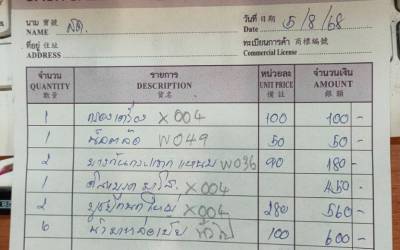 นาม 寶號
NAME สด.
วันที่ 日期
Date 5/8/68
ที่อยู่ 住址
ADDRESS
ทะเบียนการค้า 商標編號
Commercial License
จำนวน รายการ หน่วยละ จำนวนเงิน
QUANTITY DESCRIPTION UNIT PRICE AMOUNT
數量 貨名 備註 銀額
1 กรองเครื่อง X004 100 100-
1 น๊อตล้อ W049 50 50
2 ยางกันกระแทกแหนบ W036 90 180-
1 X004 450
2 X004 280 560-
6 100 600-